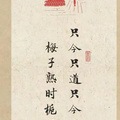 只今只道只今
梅子熟时栀